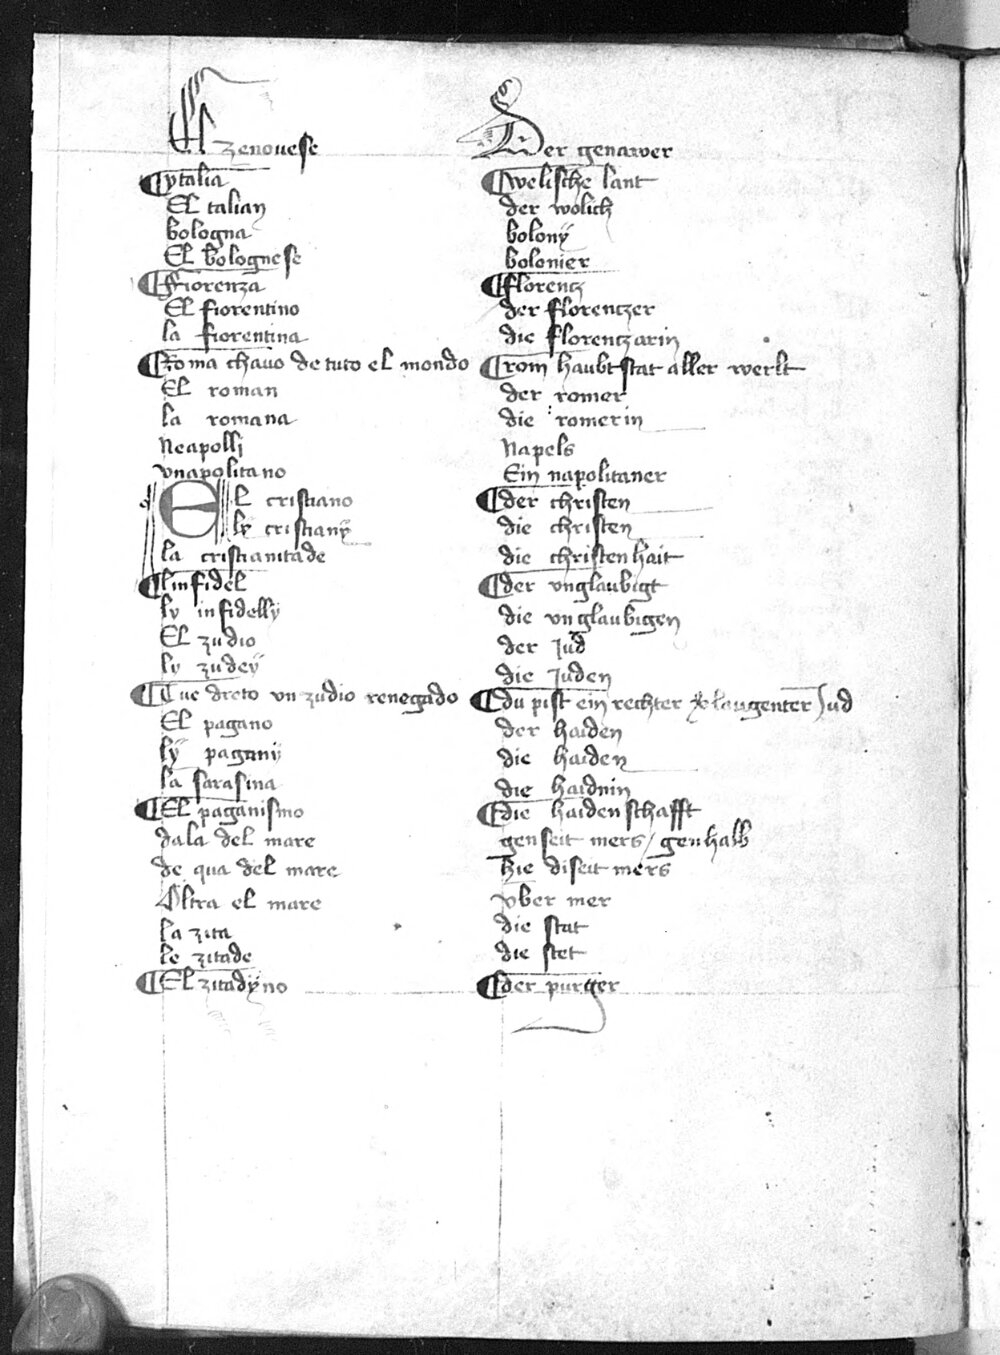 El zenouese
Der genawer
ytalia
welische lant
El talian
der wolich
bologna
bolonÿ
El bolognese
bolonier
Fiorenza
florentz
El fiorentino
der florentzer
la fiorentina
die florentzarin
Roma chauo de tuto el mondo
rom haubtstat aller werlt
El roman
der romer
la romana
die romerin
Neapolli
Napels
vnapolitano
Ein napolitaner
El cristiano
der christen
lÿ cristianÿ
die christen
la cristianitade
die christenhait
linfidel
der vnglaubigt
ly infidellÿ
die vnglaubigen
El zudio
der Jud
ly zudeÿ
die Juden
Tue dreto vn zudio renegado
du pist ein rechter verlaugenter Jud
El pagano
der haiden
lÿ paganÿ
die haiden
la sarasina
die haidnin
El paganismo
die haidenschafft
dala del mare
genseit mers / genhalb
de qua del mare
hie diseit mers
Oltra el mare
vber mer
la zita
die stat
le zitade
die stet
El zitadÿno
der purger